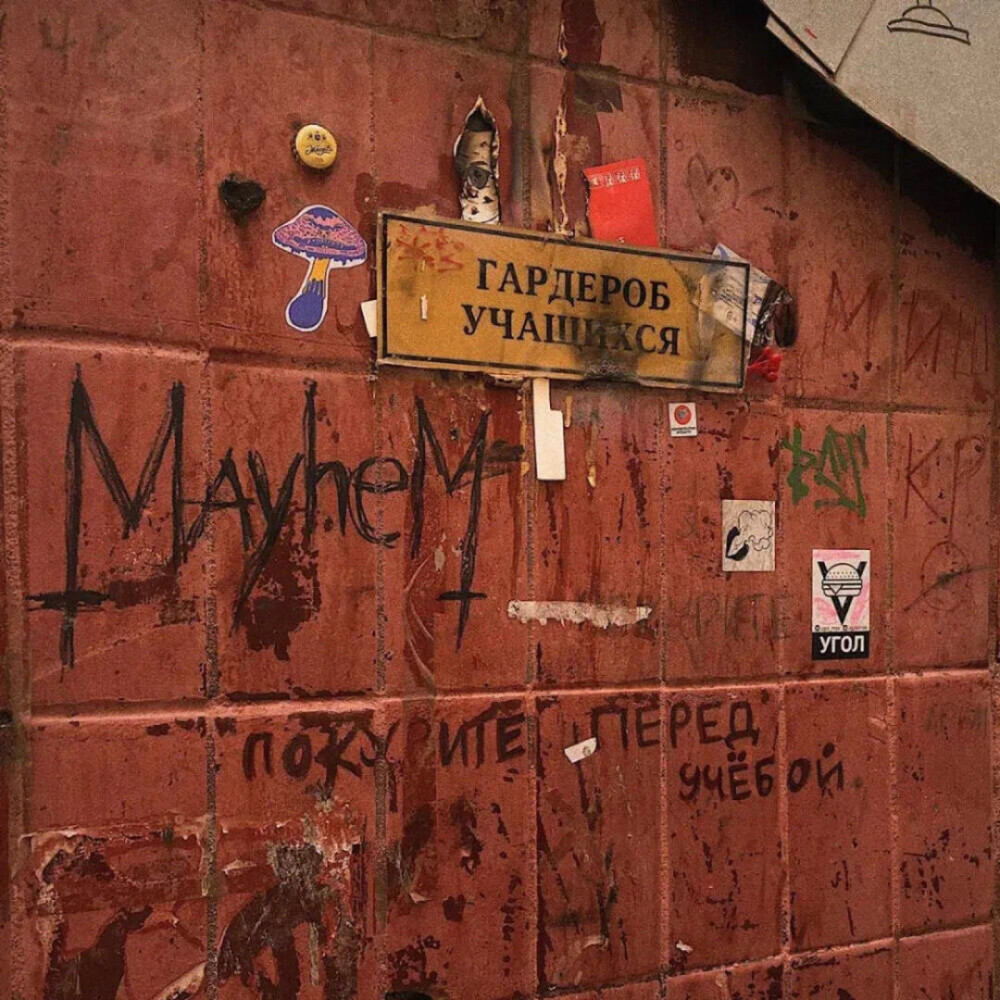 ГАРДЕРОБ
УЧАЩИХСЯ
MayheM
МИШ
КР
УГОЛ
ПОКУРИТЕ ПЕРЕД
УЧЁБОЙ